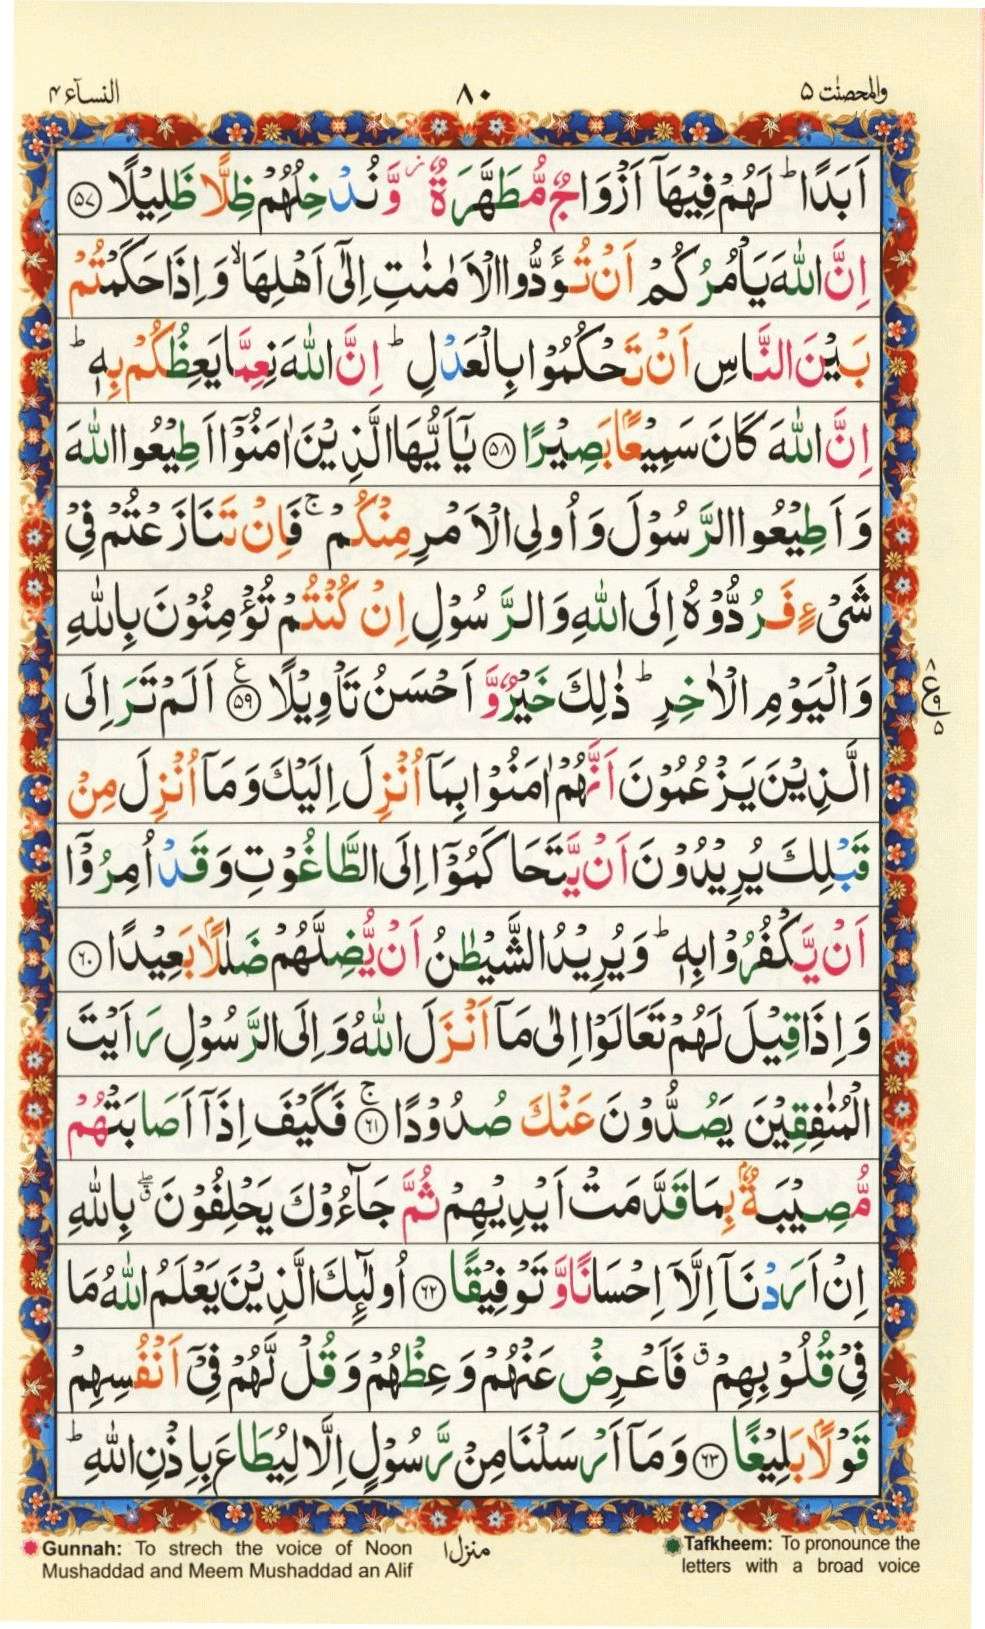 النسآء ٤
٨٠
والمحصنٰت ٥
اَبَدًاؕ لَهُمْ فِیْهَاۤ اَزْوَاجٌ مُّطَهَّرَةٌ٘ وَّ نُدْخِلُهُمْ ظِلًّا ظَلِیْلًا ۝۵۷
اِنَّ اللّٰهَ یَاْمُرُكُمْ اَنْ تُؤَدُّوا الْاَمٰنٰتِ اِلٰۤی اَهْلِهَاۙ وَ اِذَا حَكَمْتُمْ
بَیْنَ النَّاسِ اَنْ تَحْكُمُوْا بِالْعَدْلِؕ اِنَّ اللّٰهَ نِعِمَّا یَعِظُكُمْ بِهٖؕ
اِنَّ اللّٰهَ كَانَ سَمِیْعًۢا بَصِیْرًا ۝۵۸ یٰۤاَیُّهَا الَّذِیْنَ اٰمَنُوْۤا اَطِیْعُوا اللّٰهَ
وَ اَطِیْعُوا الرَّسُوْلَ وَ اُولِی الْاَمْرِ مِنْكُمْۚ فَاِنْ تَنَازَعْتُمْ فِیْ
شَیْءٍ فَرُدُّوْهُ اِلَی اللّٰهِ وَ الرَّسُوْلِ اِنْ كُنْتُمْ تُؤْمِنُوْنَ بِاللّٰهِ
وَ الْیَوْمِ الْاٰخِرِؕ ذٰلِكَ خَیْرٌ وَّ اَحْسَنُ تَاْوِیْلًا ۝۵۹ؑ اَلَمْ تَرَ اِلَی
الَّذِیْنَ یَزْعُمُوْنَ اَنَّهُمْ اٰمَنُوْا بِمَاۤ اُنْزِلَ اِلَیْكَ وَ مَاۤ اُنْزِلَ مِنْ
قَبْلِكَ یُرِیْدُوْنَ اَنْ یَّتَحَاكَمُوْۤا اِلَی الطَّاغُوْتِ وَ قَدْ اُمِرُوْۤا
اَنْ یَّكْفُرُوْا بِهٖؕ وَ یُرِیْدُ الشَّیْطٰنُ اَنْ یُّضِلَّهُمْ ضَلٰلًۢا بَعِیْدًا ۝۶۰
وَ اِذَا قِیْلَ لَهُمْ تَعَالَوْا اِلٰی مَاۤ اَنْزَلَ اللّٰهُ وَ اِلَی الرَّسُوْلِ رَاَیْتَ
الْمُنٰفِقِیْنَ یَصُدُّوْنَ عَنْكَ صُدُوْدًا ۝۶۱ۚ فَكَیْفَ اِذَاۤ اَصَابَتْهُمْ
مُّصِیْبَةٌۢ بِمَا قَدَّمَتْ اَیْدِیْهِمْ ثُمَّ جَآءُوْكَ یَحْلِفُوْنَ ۖۗ بِاللّٰهِ
اِنْ اَرَدْنَاۤ اِلَّاۤ اِحْسَانًا وَّ تَوْفِیْقًا ۝۶۲ اُولٰٓىِٕكَ الَّذِیْنَ یَعْلَمُ اللّٰهُ مَا
فِیْ قُلُوْبِهِمْۗ فَاَعْرِضْ عَنْهُمْ وَ عِظْهُمْ وَ قُلْ لَّهُمْ فِیْۤ اَنْفُسِهِمْ
قَوْلًۢا بَلِیْغًا ۝۶۳ وَ مَاۤ اَرْسَلْنَا مِنْ رَّسُوْلٍ اِلَّا لِیُطَاعَ بِاِذْنِ اللّٰهِؕ
۸
ع۹
۵
Gunnah: To strech the voice of Noon
Mushaddad and Meem Mushaddad an Alif
منزل ۱
Tafkheem: To pronounce the
letters with a broad voice